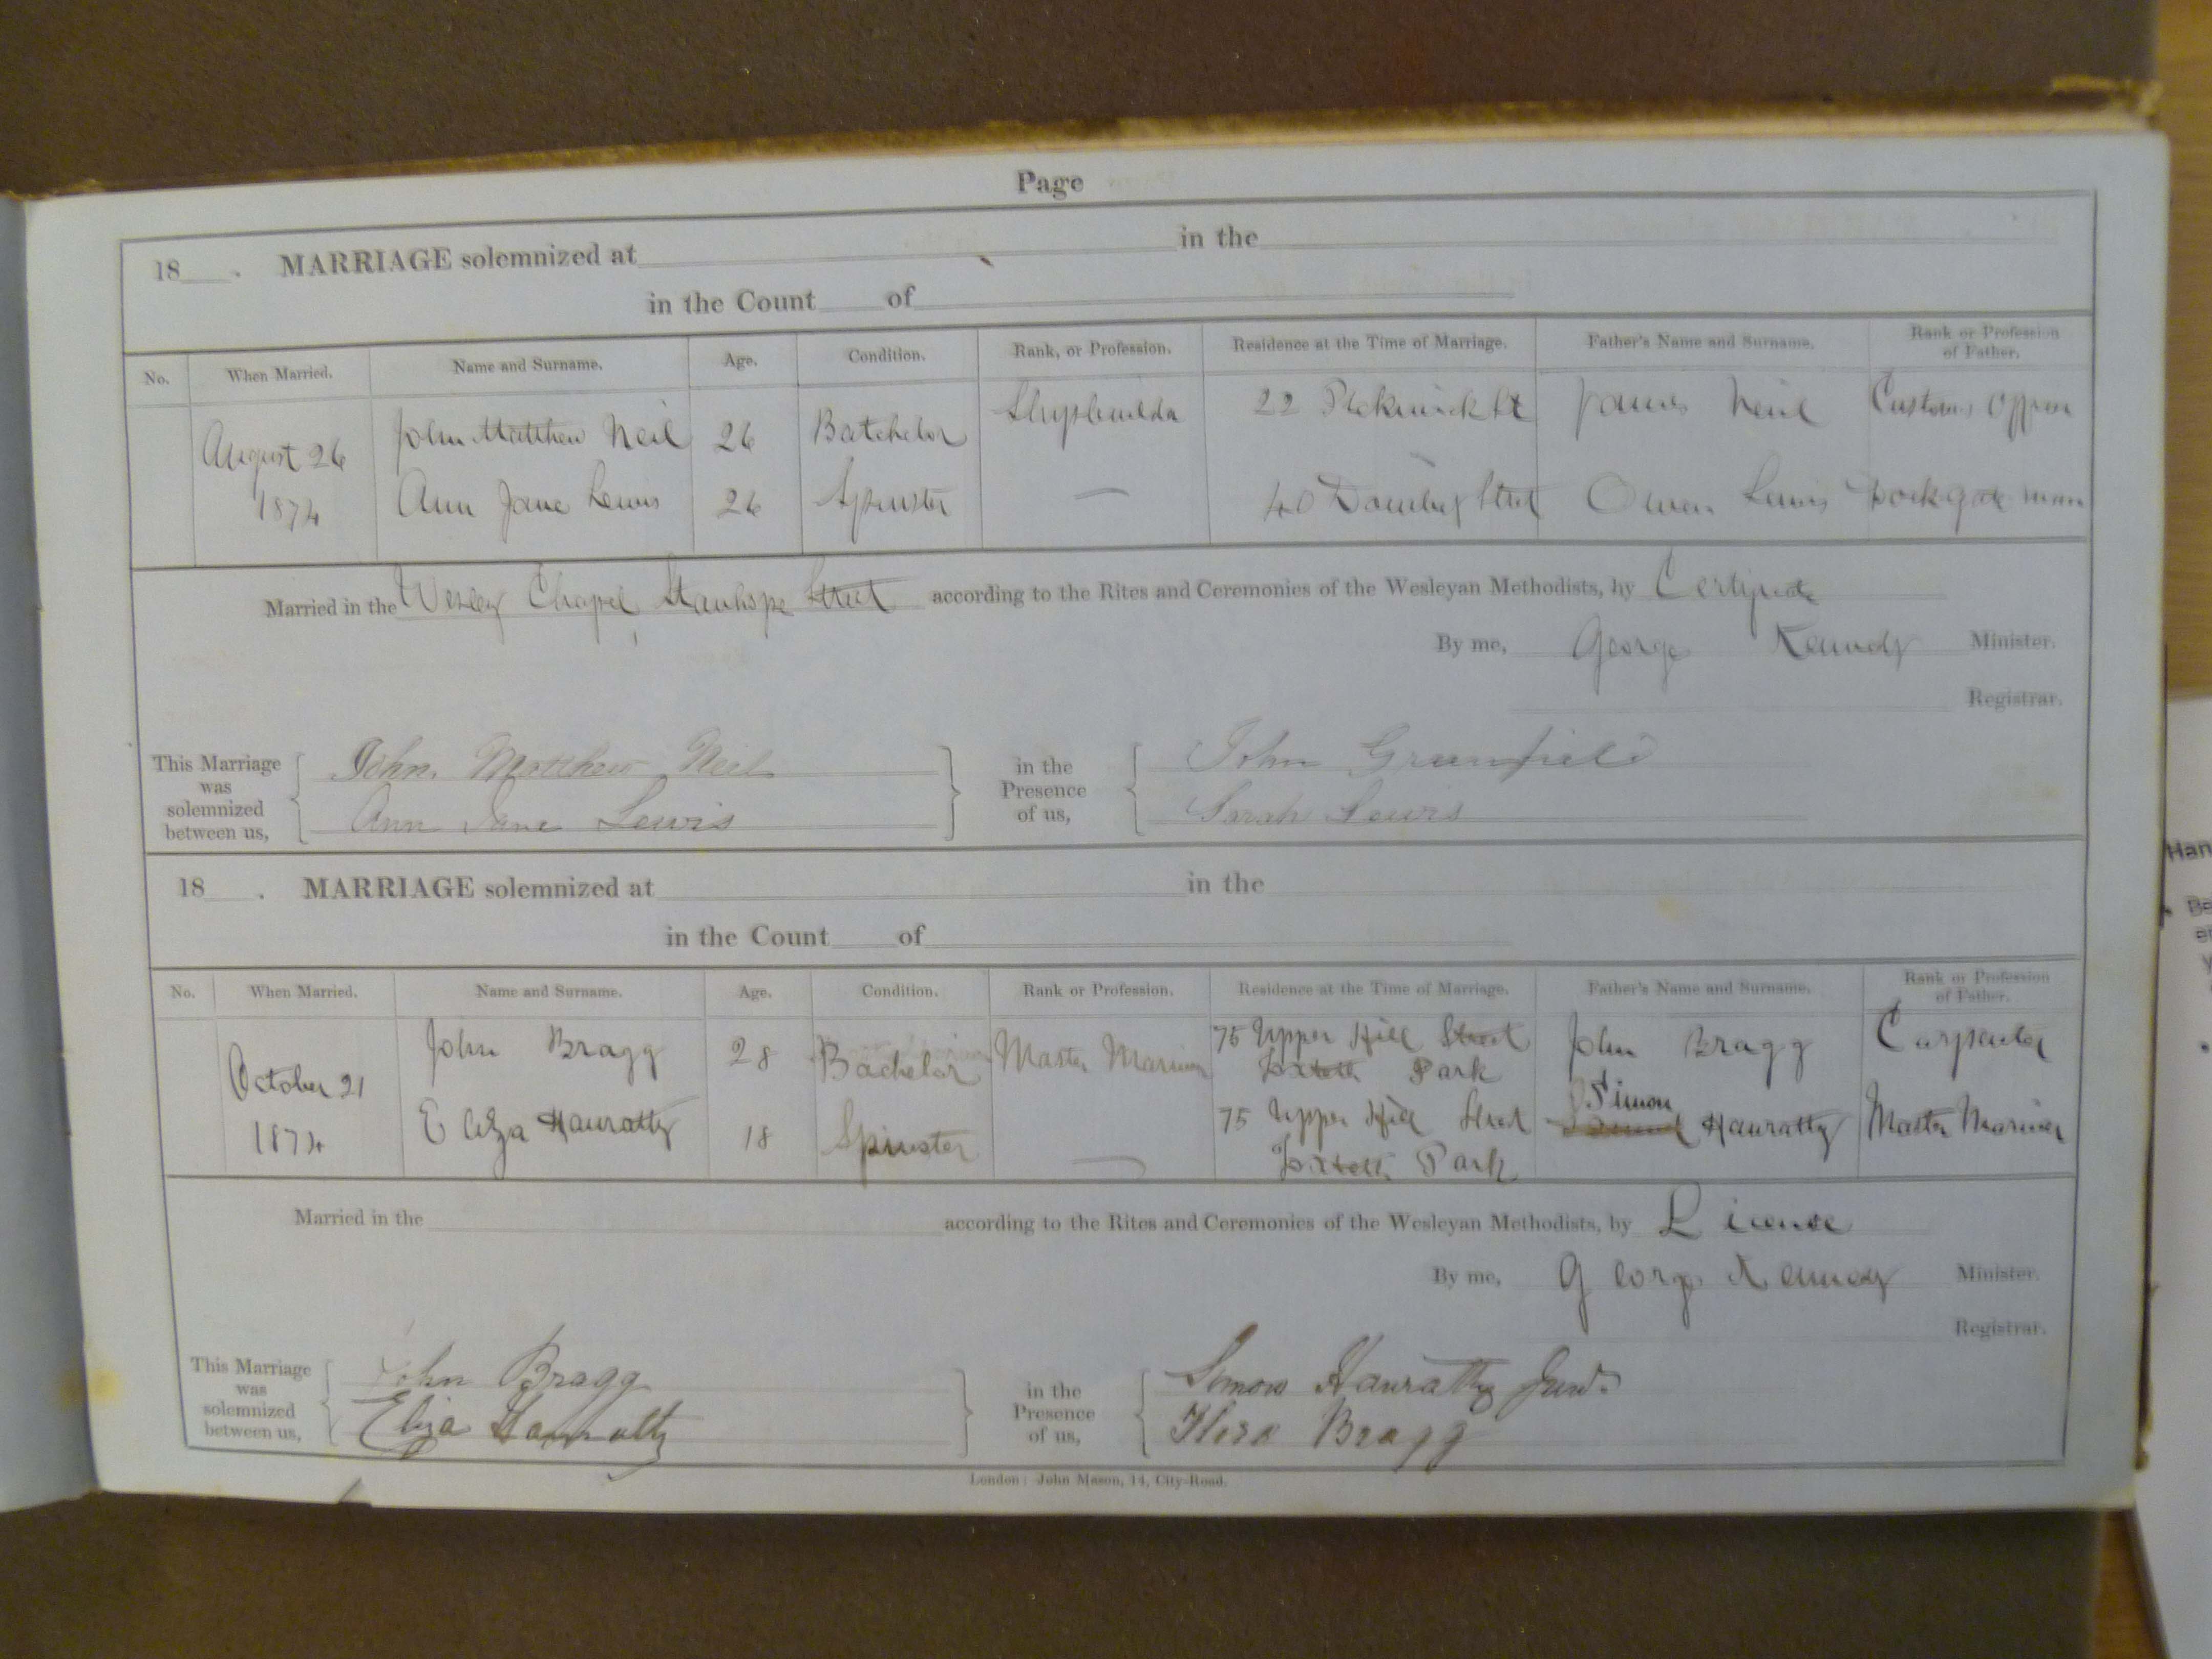 Page
18 . MARRIAGE solemnized at in the
in the Count of
No. When Married. Name and Surname. Age. Condition. Rank, or Profession. Residence at the Time of Marriage. Father's Name and Surname. Rank or Profession of Father.
August 26 John Matthew Neil 26 Batchelor Shipbuilder 22 Pickwick St James Neil Customs Officer
1874 Ann Jane Lewis 26 Spinster — 40 Dombey Street Owen Lewis Dockgate man
Married in the Wesley Chapel, Stanhope Street according to the Rites and Ceremonies of the Wesleyan Methodists, by Certificate
By me, George Kennedy Minister.
Registrar.
This Marriage was solemnized between us, John Matthew Neil in the Presence of us, John Greenfield
Ann Jane Lewis Sarah Lewis
18 . MARRIAGE solemnized at in the
in the Count of
No. When Married. Name and Surname. Age. Condition. Rank or Profession. Residence at the Time of Marriage. Father's Name and Surname. Rank or Profession of Father.
October 21 John Bragg 28 Bachelor Master Mariner 75 Upper Hill Street Toxteth Park John Bragg Carpenter
1874 Eliza Hanratty 18 Spinster — 75 Upper Hill Street Toxteth Park Simon Hanratty Master Mariner
Married in the according to the Rites and Ceremonies of the Wesleyan Methodists, by License
By me, George Kennedy Minister.
Registrar.
This Marriage was solemnized between us, John Bragg in the Presence of us, Simon Hanratty Junr.
Eliza Hanratty Bragg
London: John Mason, 14, City-Road.